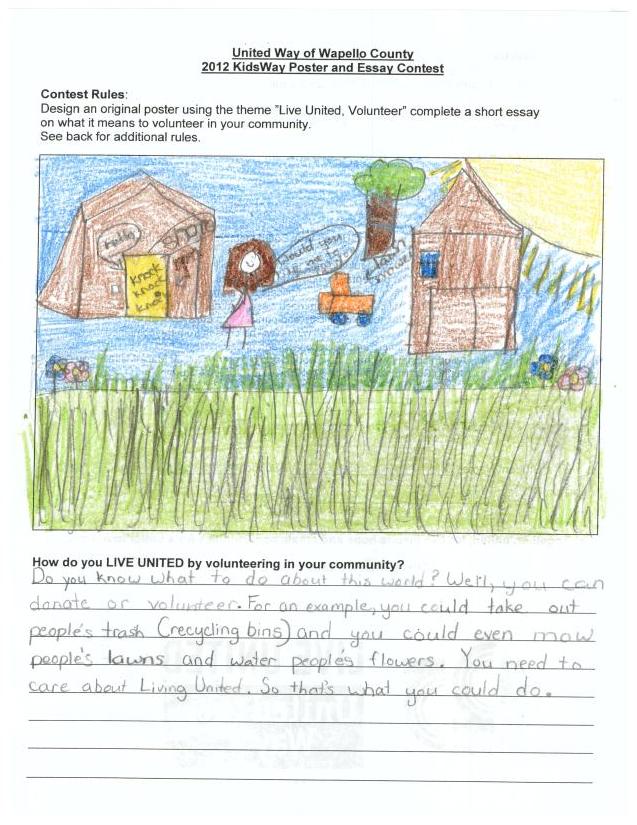 United Way of Wapello County
2012 KidsWay Poster and Essay Contest
Contest Rules:
Design an original poster using the theme "Live United, Volunteer" complete a short essay
on what it means to volunteer in your community.
See back for additional rules.
hello
Shop
Knock
Knock
Knock
Would you
like me to
lawn
mower
How do you LIVE UNITED by volunteering in your community?
Do you know what to do about this world? Well, you can
donate or volunteer. For an example, you could take out
people's trash (recycling bins) and you could even mow
people's lawns and water people's flowers. You need to
care about Living United. So that's what you could do.